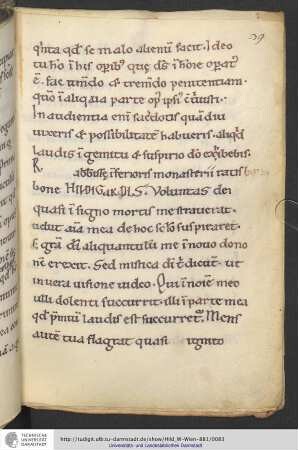 39
quita qđ se malo alienū facit. Ideo
tu hō in his oꝑibꝰ que dš in hōne oꝑatꝰ
ē. fac timēdo & tremēdo penitentiam.
quō in aliqua parte opꝰ ipsiꝰ
In audientia enī sacdotis quādiu
uixeris & possibilitatē habueris. aliqđ
laudis in gemitu & suspirio dō exhibebis.
R abbisse inferioris monasterii ratis
bone HILDIGARDIS. Voluntas dei
quasi in signo mortis me
uelut aīa mea de hoc sclo suspiraret.
S; grā dī aliquantulū me in nouo dono
erexit. Sed mistica dī dicunt. ut
in uera uisione uideo. Qui in noīe meo
illi dolenti succurrit. illi in parte mea
qđ p̄miū laudis est succurret. Mens
autē tua flagrat quasi ignito
TECHNISCHE
UNIVERSITÄT
DARMSTADT
http://tudigit.ulb.tu-darmstadt.de/show/Hild_W-Wien-881/0083
Universitäts- und Landesbibliothek Darmstadt